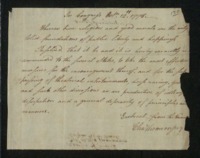 In Congress Octr. 12th. 1778.
Whereas true religion and good morals are the only
solid foundations of public liberty and happiness
Resolved, that it be and it is hereby earnestly
recommended to the several States, to take the most effectual
measures for the encouragement thereof, and for the
suppressing of theatrical entertainments, horse racing, gaming,
and such other diversions as are productive of idleness
dissipation and a general depravity of principles and
manners.
Extract from the minutes
Cha Thomson secy